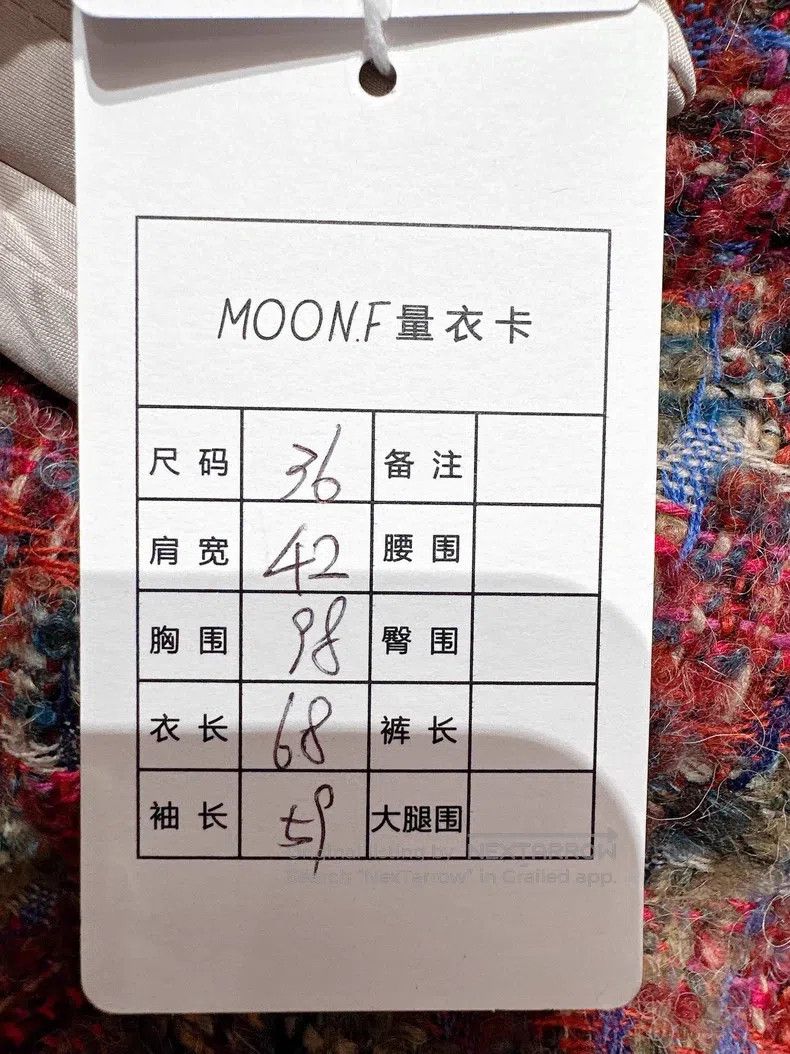 MOON.F 量衣卡
尺码 36 备注
肩宽 42 腰围
胸围 98 臀围
衣长 68 裤长
袖长 59 大腿围
Original listing by NEXTARROW
Search "NexTarrow" in Grailed app.